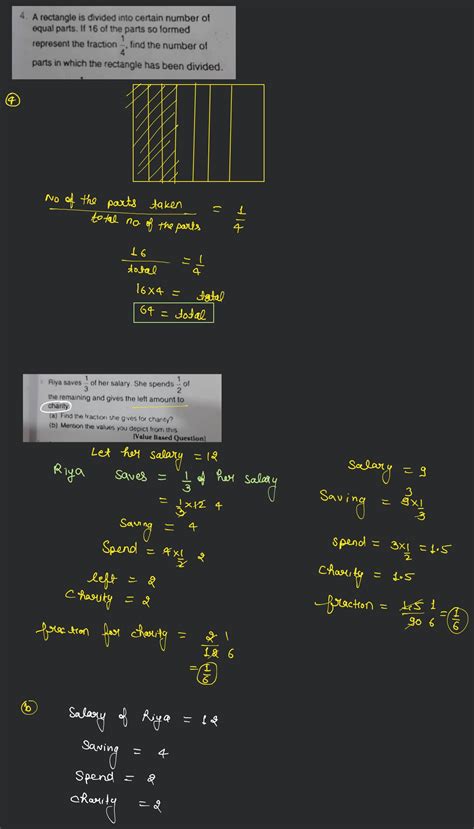 4. A rectangle is divided into certain number of
equal parts. If 16 of the parts so formed
represent the fraction 1/4, find the number of
parts in which the rectangle has been divided.
4
No of the parts taken / total no of the parts = 1/4
16/total = 1/4
16×4 = total
64 = total
Riya saves 1/3 of her salary. She spends 1/2 of
the remaining and gives the left amount to
charity.
(a) Find the fraction she gives for charity?
(b) Mention the values you depict from this.
[Value Based Question]
Let her salary = 12
Riya saves = 1/3 of her salary
= 1/3 × 12 4
Saving = 4
Spend = 4×1/2 2
left = 2
Charity = 2
fraction for charity = 2/12 1/6
= 1/6
Salary = 9
Saving = 3 9×1/3
Spend = 3×1/2 = 1.5
Charity = 1.5
fraction = 1.5/90 1/6 = 1/6
b
Salary of Riya = 12
Saving = 4
Spend = 2
Charity = 2